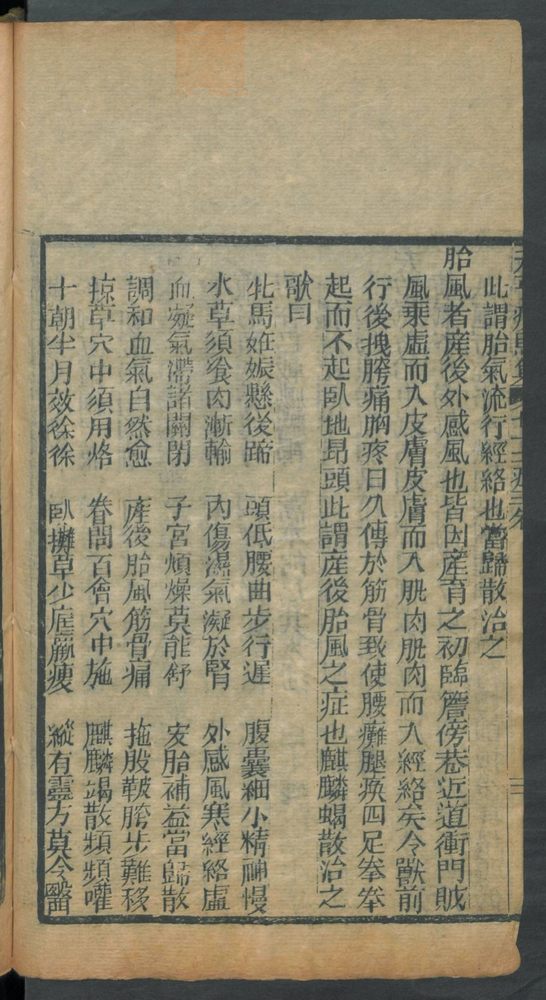 此謂胎氣流行經絡也當歸散治之
胎風者産後外感風也皆因産育之初臨簷傍巷近道衝門賊
風乘虛而入皮膚皮膚而入肌肉肌肉而入經絡矣令獸前
行後拽胯痛胸疼日久傳於筋骨致使腰癱腿瘓四足拳攣
起而不起臥地昂頭此謂産後胎風之症也麒麟蝎散治之
歌曰
牝馬姙娠懸後蹄 頭低腰曲步行遲 腹囊細小精神慢
水草須飡肉漸輸 內傷濕氣凝於腎 外感風寒經絡虛
血凝氣滯諸關閉 子宮煩燥莫能舒 安胎補益當歸散
調和血氣自然愈 産後胎風筋骨痛 拖股鞁胯步難移
掠草穴中須用烙 眷間百會穴中施 麒麟竭散頻頻嚾
十朝半月效徐徐 臥攤草少尪羸瘦 縱有靈方莫令醫